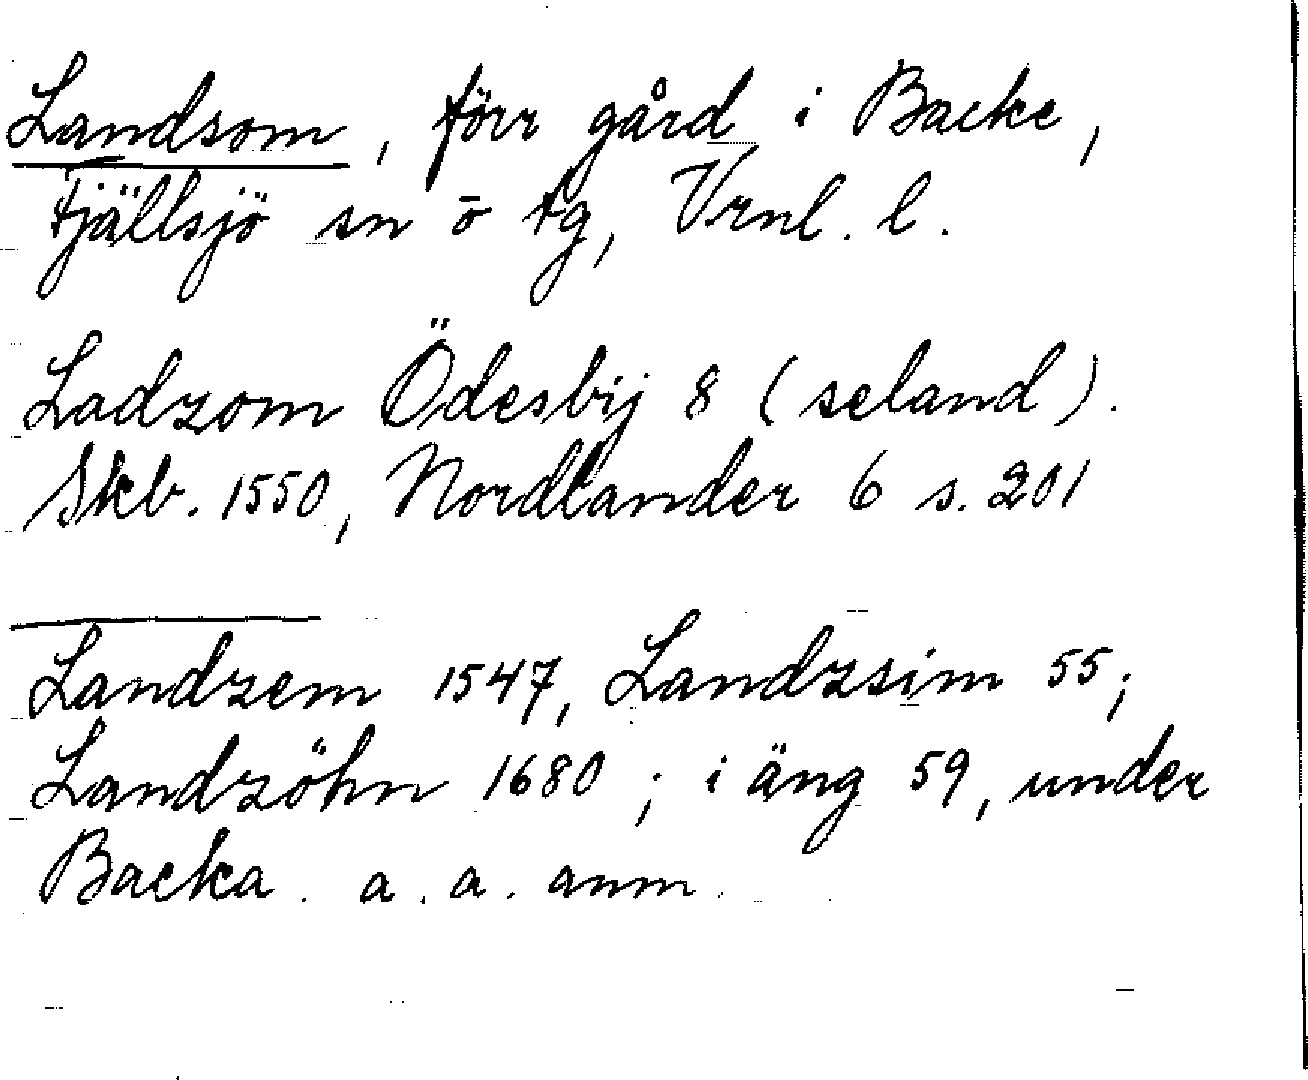 Landsom, förr gård i Backe,
Fjällsjö sn o tg, Vrnl. l.
Ladzom Ödesbij 8 (seland).
Skb. 1550, Nordlander 6 s. 201
Landzem 1547, Landzsim 55;
Landzöhn 1680; i äng 59, under
Backa. a. a. anm.